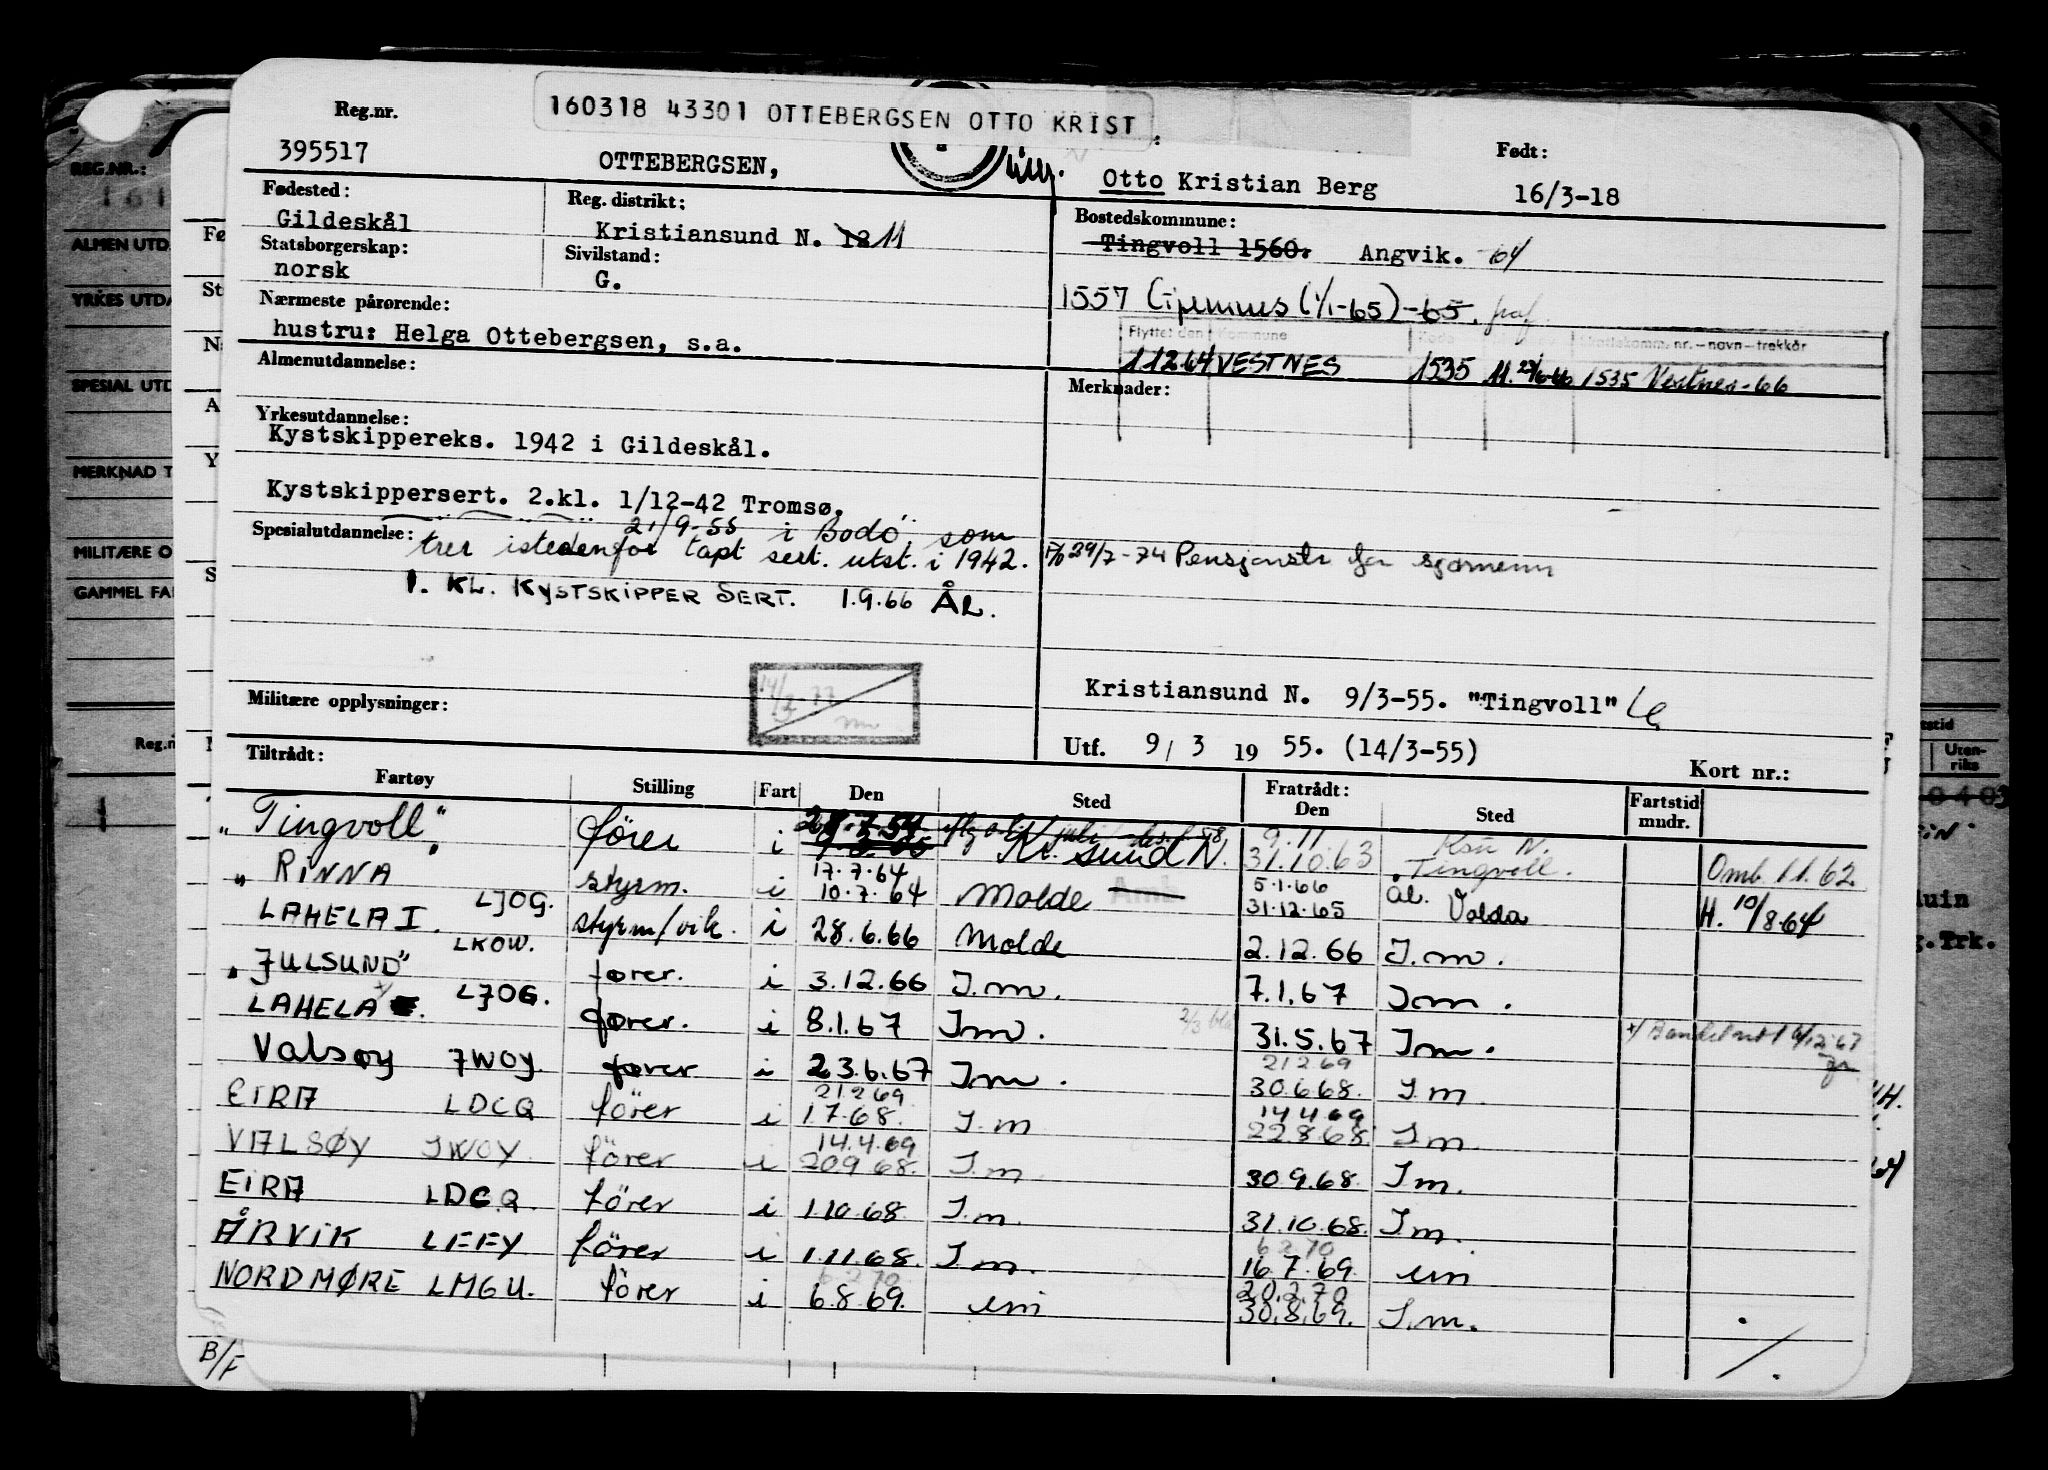 160318 43301 OTTEBERGSEN OTTO KRIST
Reg.nr.
395517
OTTEBERGSEN,
Otto Kristian Berg
Født:
16/3-18
Fødested:
Gildeskål
Reg. distrikt:
Kristiansund N. 12 11
Bostedskommune:
Tingvoll 1560. Angvik. -64
Statsborgerskap:
norsk
Sivilstand:
G.
1557 Gjemnes (1/1-65)-65.
Nærmeste pårørende:
hustru: Helga Ottebergsen, s.a.
Flyttet den Kommune
11264 VESTNES 1535 11. 1535 Vestnes-66
Almenutdannelse:
Merknader:
Yrkesutdannelse:
Kystskippereks. 1942 i Gildeskål.
Kystskippersert. 2.kl. 1/12-42 Tromsø.
21/9-55 i Bodö, som
Spesialutdannelse:
trer istedenfor tapt sert. utst. i 1942.
29/7-74 Pensjonstr for sjømenn
1. KL. KYSTSKIPPER SERT. 1.9.66 ÅL.
14/2-77
Militære opplysninger:
Kristiansund N. 9/3-55. "Tingvoll"
Utf. 9/3 19 55. (14/3-55)
Tiltrådt:
Kort nr.:
Fartøy Stilling Fart Den Sted Fratrådt: Den Sted Fartstid mndr.
"Tingvoll" förer i 28.7.54 Kr. sund N. 9.11 31.10.63 Ksu N. Tingvoll. Omb 11.62
"RINNA LJOG. styrm. i 17.7.64 10.7.64 Molde 5.1.66 31.12.65 ål. Volda H. 10/8-64
LAHELA I. LKOW. styrm/vik. i 28.6.66 Molde 2.12.66 I.m.
"JULSUND" LJOG. fører. i 3.12.66 I.m. 7.1.67 Im.
LAHELA fører. i 8.1.67 Im. 31.5.67 Im.
Valsøy JWOY. fører i 23.6.67 Im. 21269 30.6.68. I.m.
EIRA LDCQ förer i 21269 1.7.68. I.m 14.4.69 22.8.68 I.m
VALSØY JWOY förer i 14.4.69 20.9.68. I.m. 30.9.68. I.m.
EIRA LDCQ. förer i 1.10.68. I.m. 31.10.68. I.m.
ÅRVIK LEEY förer i 1.11.68. I.m. 6270 16.7.69. um
NORDMØRE LMGU. förer i 6270 6.8.69. um 20.2.70 30.8.69. I.m.
B/F
REG.NR.:
ALMEN UTD.
YRKES UTDA
SPECIAL UTD
MERKNAD T
MILITÆRE O
GAMMEL FA
Reg.n
Uten-
riks
g.Trk.